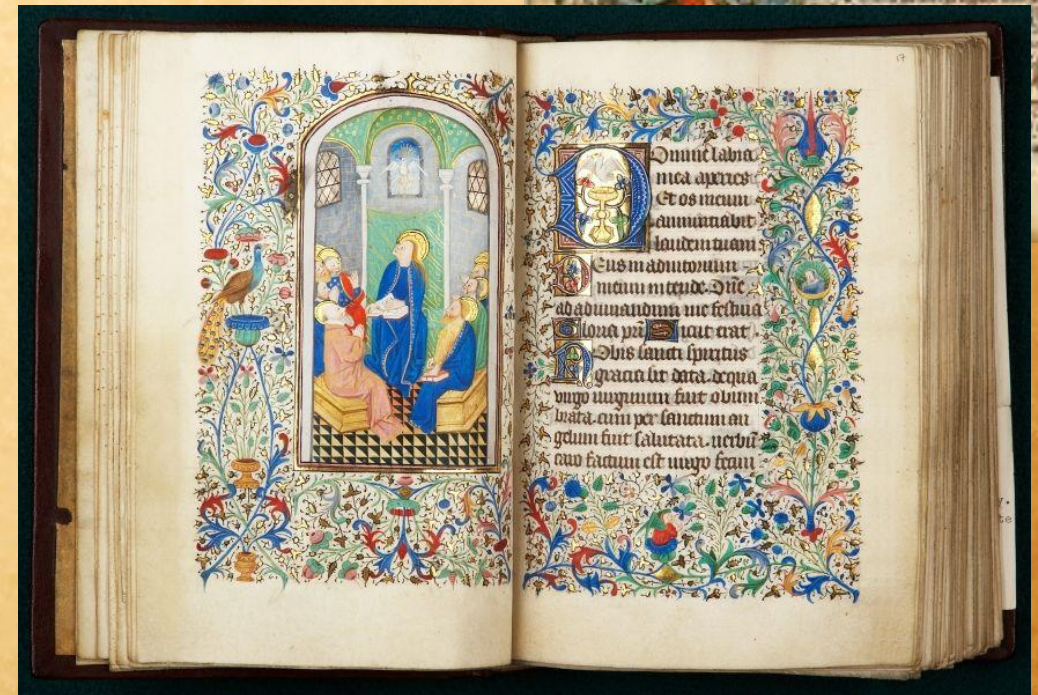 17
Domine labia
mea aperies
Et os meum
annuntiabit
laudem tuam
Deus in adiutorium
meum intende. Dñe
ad adiuuandum me festina
Gloria pri Sicut erat
Nobis sancti spiritus
gracia sit data. de qua
virgo virginum fuit obum
brata. cum per sanctum an
gelum fuit salutata. uerbū
caro factum est virgo fecun